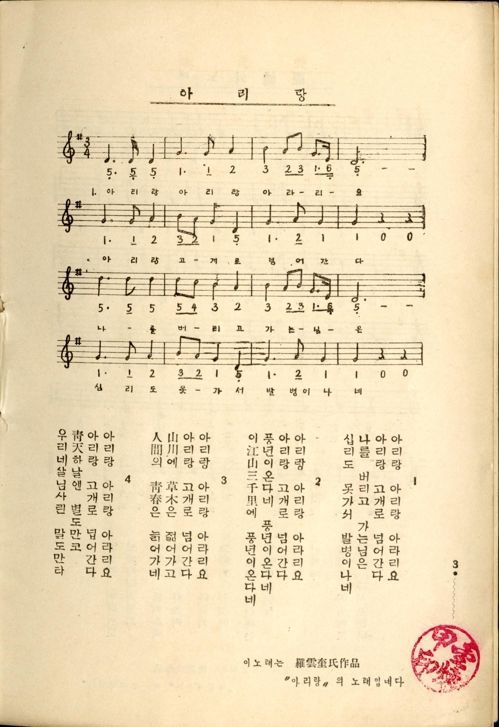 아 리 랑
3/4
5. 5 5 1. 1 2 3 2 3 1. 6 5 - -
1. 아 리 랑 아 리 랑 아 라 - 리 - 요
1. 1 2 3 2 1 5 1. 2 1 1 0 0
아 리 랑 고 - 개 로 넘 어 간 다
5. 5 5 5 4 3 2 3 2 3 1. 6 5 - -
나 - 를 버 - 리 고 가 는 - 님 - 은
1. 1 2 3 2 1 5 1. 2 1 1 0 0
십 리 도 못 - 가 서 발 병 이 나 네
1
아리랑 아리랑 아라리요
아리랑 고개로 넘어간다
나를 버리고 가는님은
십리도 못가서 발병이나네
2
아리랑 아리랑 아라리요
아리랑 고개로 넘어간다
풍년이온다네 풍년이온다네
이江山三千里에 풍년이온다네
3
아리랑 아리랑 아라리요
아리랑 고개로 넘어간다
山川에 草木은 젊어가고
人間의 靑春은 늙어가네
4
아리랑 아리랑 아라리요
아리랑 고개로 넘어간다
靑天하날엔 별도만코
우리네살님사리 말도만타
3
이노래는 羅雲奎氏作品
"아리랑" 의 노래입네다